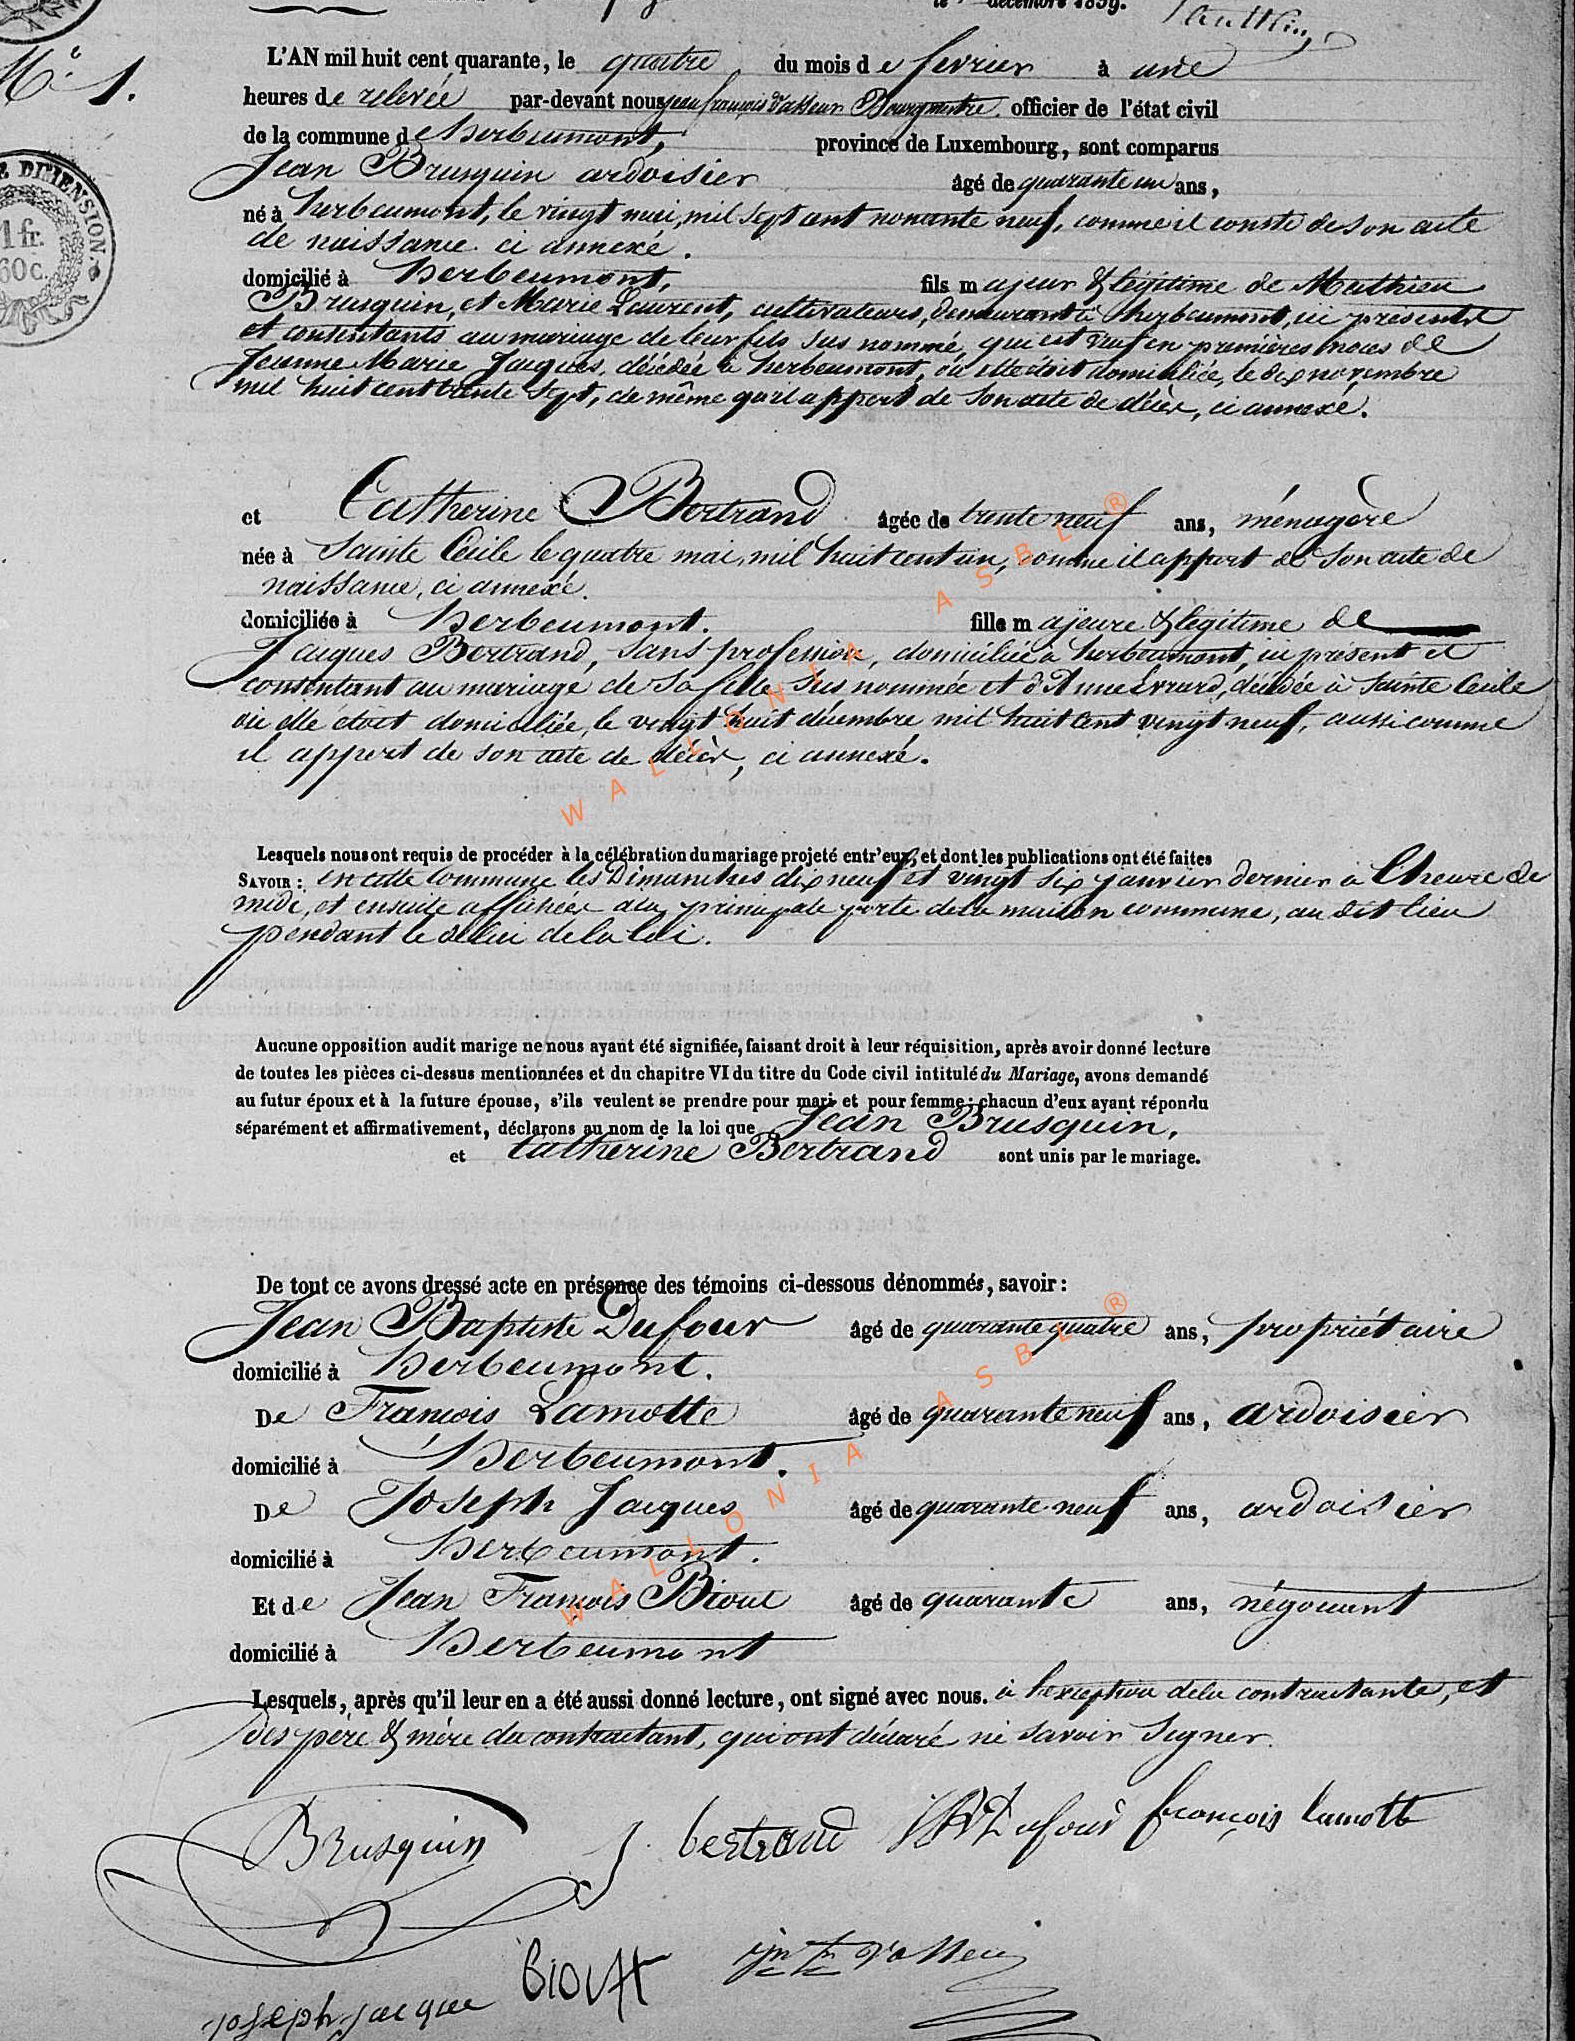 le décembre 1839.
N.° 1.
L'AN mil huit cent quarante, le quatre du mois de fevrier à une
heures de relevée par-devant nous jean françois Vasseur Bourgmestre officier de l'état civil
de la commune de herbeumont, province de Luxembourg, sont comparus
E DIMENSION.
1 fr.
60 c.
Jean Brusquin ardoisier âgé de quarante un ans,
né à herbeumont, le vingt mai, mil sept cent nonante neuf, comme il conste de son acte
de naissance ci annexé.
domicilié à herbeumont, fils majeur & légitime de Mathieu
Brusquin, et Marie Laurent, cultivateurs, demeurant à herbeumont, ici présents
et consentants au mariage de leur fils sus nommé, qui est veuf en premières noces de
Jeanne Marie Jacques, décédée à herbeumont, où elle étoit domiciliée, le dix novembre
mil huit cent trente sept, de même qu'il appert de son acte de décès, ci annexé.
et Catherine Bertrand âgée de trente neuf ans, ménagère
née à Sainte Cécile le quatre mai, mil huit cent un, comme il appert de son acte de
naissance, ci annexé.
domiciliée à herbeumont. fille majeure & légitime de
Jacques Bertrand, sans profession, domicilié à herbeumont, ici présent et
consentant au mariage de sa fille sus nommée et d'Anne Evrard, décédée à Sainte Cécile
où elle étoit domiciliée, le vingt huit décembre mil huit cent vingt neuf, aussi comme
il appert de son acte de décès, ci annexé.
Lesquels nous ont requis de procéder à la célébration du mariage projeté entr'eux, et dont les publications ont été faites
SAVOIR : en cette commune les Dimanches dix neuf et vingt six janvier dernier à l'heure de
midi, et ensuite affichées à la principale porte de la maison commune, au dit lieu
pendant le délai de la loi.
Aucune opposition audit marige ne nous ayant été signifiée, faisant droit à leur réquisition, après avoir donné lecture
de toutes les pièces ci-dessus mentionnées et du chapitre VI du titre du Code civil intitulé du Mariage, avons demandé
au futur époux et à la future épouse, s'ils veulent se prendre pour mari et pour femme ; chacun d'eux ayant répondu
séparément et affirmativement, déclarons au nom de la loi que Jean Brusquin,
et Catherine Bertrand sont unis par le mariage.
De tout ce avons dressé acte en présence des témoins ci-dessous dénommés, savoir :
Jean Baptiste Dufour âgé de quarante quatre ans, propriétaire
domicilié à herbeumont.
De François Lamotte âgé de quarante neuf ans, ardoisier
domicilié à herbeumont.
De Joseph Jacques âgé de quarante neuf ans, ardoisier
domicilié à herbeumont.
Et de Jean François Biout âgé de quarante ans, négociant
domicilié à herbeumont
Lesquels, après qu'il leur en a été aussi donné lecture, ont signé avec nous. à l'exception de la contractante, et
des père & mère du contractant, qui ont déclaré ne savoir signer.
Brusquin J. bertrand JB Dufour françois lamotte
joseph jacque Biout Vasseur
WALLONIA ASBL ®
WALLONIA ASBL ®